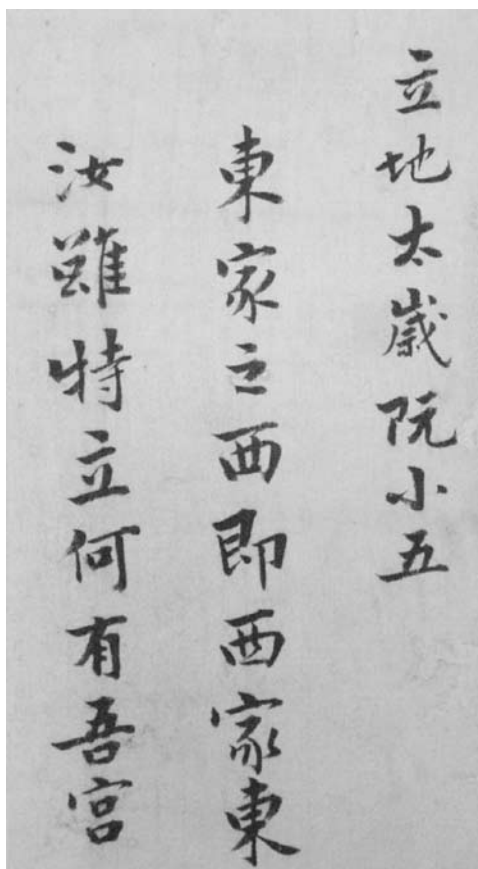 立地太歲阮小五
東家之西即西家東
汝雖特立何有吾宮